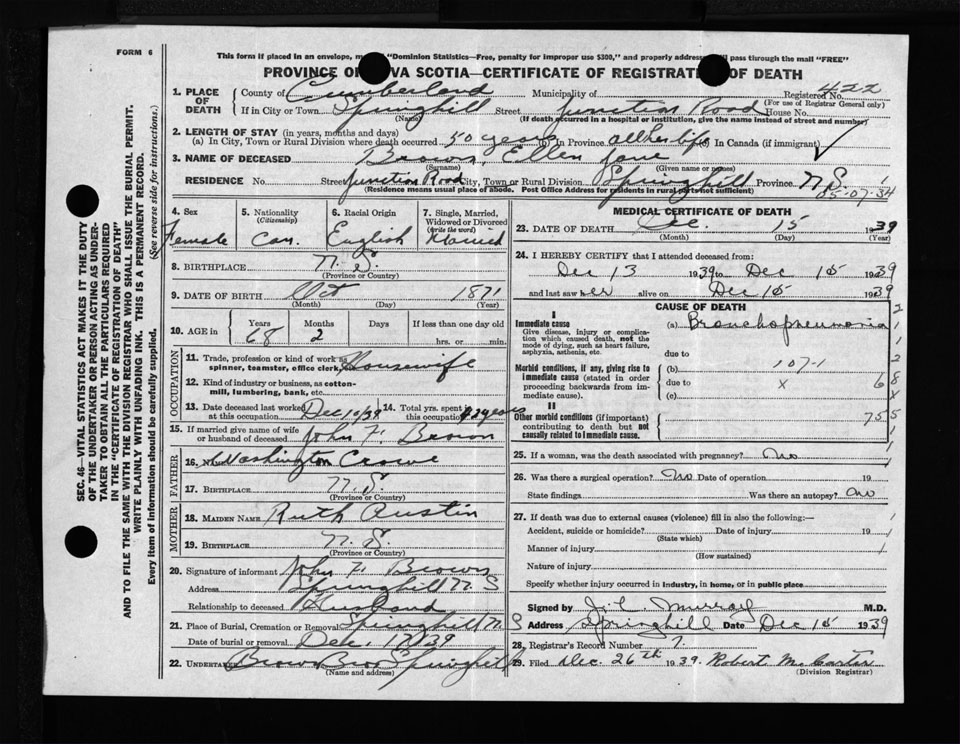 FORM 6
This form if placed in an envelope, "Dominion Statistics—Free, penalty for improper use $300," and properly address pass through the mail "FREE"
PROVINCE O VA SCOTIA—CERTIFICATE OF REGISTRAT OF DEATH
1. PLACE OF DEATH
County of Cumberland Municipality of Registered No. 422
(For use of Registrar General only)
If in City or Town Springhill Street Junction Road House No.
(Name) (If death occurred in a hospital or institution, give the name instead of street and number)
2. LENGTH OF STAY (in years, months and days)
(a) In City, Town or Rural Division where death occurred 50 years (b) In Province all her life (c) In Canada (if immigrant)
3. NAME OF DECEASED Brown Ellen Jane
(Surname) (Given name or names)
RESIDENCE No. Street Junction Road City, Town or Rural Division Springhill Province N.S.
(Residence means usual place of abode. Post Office Address for residents in rural parts not sufficient)
25-07-34
4. Sex Female
5. Nationality (Citizenship) Can.
6. Racial Origin English
7. Single, Married, Widowed or Divorced (write the word) Married
8. BIRTHPLACE N.S.
(Province or Country)
9. DATE OF BIRTH Oct 1871
(Month) (Day) (Year)
10. AGE in Years Months Days If less than one day old
68 2 hrs. or min.
OCCUPATION
11. Trade, profession or kind of work as spinner, teamster, office clerk, Housewife
12. Kind of industry or business, as cotton-mill, lumbering, bank, etc.
13. Date deceased last worked at this occupation Dec 10/39 14. Total yrs. spent in this occupation years
15. If married give name of wife or husband of deceased John F. Brown
FATHER
16. Name Washington Crowe
17. Birthplace N.S.
(Province or Country)
MOTHER
18. MAIDEN NAME Ruth Austin
19. BIRTHPLACE N.S.
(Province or Country)
20. Signature of informant John F. Brown
Address Springhill N.S
Relationship to deceased Husband
21. Place of Burial, Cremation or Removal Springhill N.S
Date of burial or removal Dec. 17/39
22. UNDERTAKER Brown Bros Springhill
(Name and address)
MEDICAL CERTIFICATE OF DEATH
23. DATE OF DEATH Dec. 15 1939
(Month) (Day) (Year)
24. I HEREBY CERTIFY that I attended deceased from:
Dec 13 1939 to Dec 15 1939
and last saw her alive on Dec 15 1939
CAUSE OF DEATH
I
Immediate cause
Give disease, injury or complication which caused death, not the mode of dying, such as heart failure, asphyxia, asthenia, etc.
(a) Bronchopneumonia
due to
Morbid conditions, if any, giving rise to immediate cause (stated in order proceeding backwards from immediate cause).
(b) 107-1
due to x
(c)
II
Other morbid conditions (if important) contributing to death but not causally related to immediate cause.
25. If a woman, was the death associated with pregnancy? No
26. Was there a surgical operation? No Date of operation 19
State findings Was there an autopsy? No
27. If death was due to external causes (violence) fill in also the following:—
Accident, suicide or homicide? Date of injury 19
(State which)
Manner of injury
(How sustained)
Nature of injury
Specify whether injury occurred in industry, in home, or in public place
Signed by J. L. Murray M.D.
Address Springhill Date Dec 15 1939
28. Registrar's Record Number 7
29. Filed Dec. 26th 1939. Robert M. Carter
(Division Registrar)
SEC. 46—VITAL STATISTICS ACT MAKES IT THE DUTY
OF THE UNDERTAKER OR PERSON ACTING AS UNDER-
TAKER TO OBTAIN ALL THE PARTICULARS REQUIRED
IN THE "CERTIFICATE OF REGISTRATION OF DEATH"
AND TO FILE THE SAME WITH THE DIVISION REGISTRAR WHO SHALL ISSUE THE BURIAL PERMIT.
WRITE PLAINLY WITH UNFADING INK. THIS IS A PERMANENT RECORD.
Every item of information should be carefully supplied. (See reverse side for instructions.)